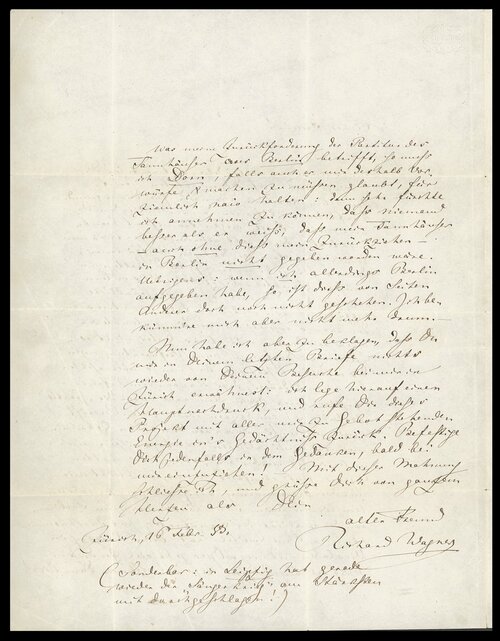 Was meine Zurückforderung der Partitur des
Tannhäuser aus Berlin betrifft, so muss
ich Dorn, falls auch er mir deshalb Vor-
würfe machen zu müssen glaubt, für
ziemlich naiv halten: denn sehr fürchte
ich annehmen zu können, dass niemand
besser als er weiss, dass mein Tannhäuser
— auch ohne diess mein Zurückziehen —
in Berlin nicht gegeben worden wäre.
Uebrigens: wenn ich allerdings Berlin
aufgegeben habe, so ist diess von Seiten
Andrer doch noch nicht geschehen. Ich be-
kümmre mich aber nicht mehr drum. —
Nun habe ich aber zu beklagen, dass Du
mir in Deinem letzten Briefe nichts
wieder von Deinem Besuche bei mir in
Zürich erwähnst: ich lege hierauf einen
Hauptnachdruck, und rufe Dir dieses
Projekt mit aller mir zu Gebot stehenden
Energie in's Gedächtniss zurück. Befestige
Dich jedenfalls in dem Gedanken, bald bei
mir einzuziehen! Mit dieser Mahnung
schliesse ich, und grüsse Dich von ganzem
Herzen als Dein
alter Freund
Zürich, 16 Febr. 53.
Richard Wagner
(Sonderbar: in Leipzig hat gerade
wieder der Sängerkrieg am Stärksten
mit durchgeschlagen!)